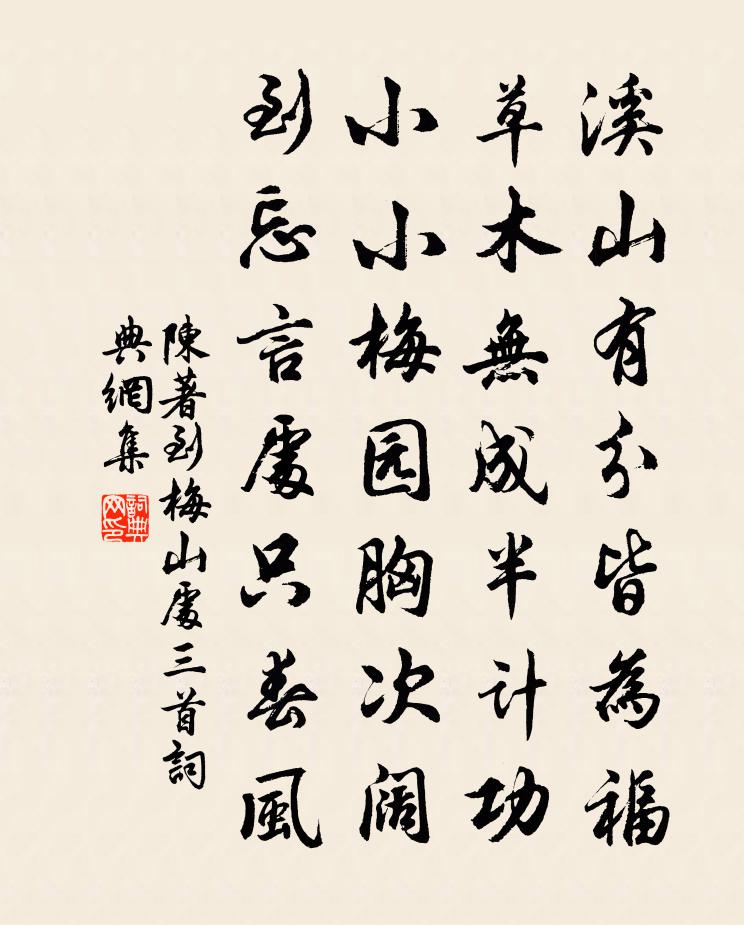 溪山有分皆為福
草木無成半计功
小小梅园胸次阔
到忘言處只春風
陳著到梅山處三首詞
典網集
詞典
网印